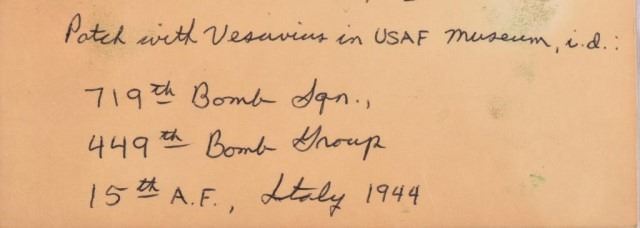 Patch with Vesuvius in USAF Museum, i.d.:
719th Bomb Sqn.,
449th Bomb Group
15th A.F., Italy 1944